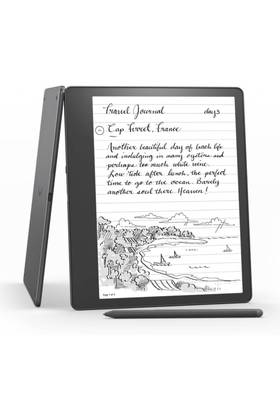 Travel Journal day 3
Cap Ferret, France
Another beautiful day of beach life
and indulging in many oysters and
perhaps too much white wine.
Low Tide after lunch, the perfect
time to go to the ocean. Barely
another soul there. Heaven!
Page 1 of 3